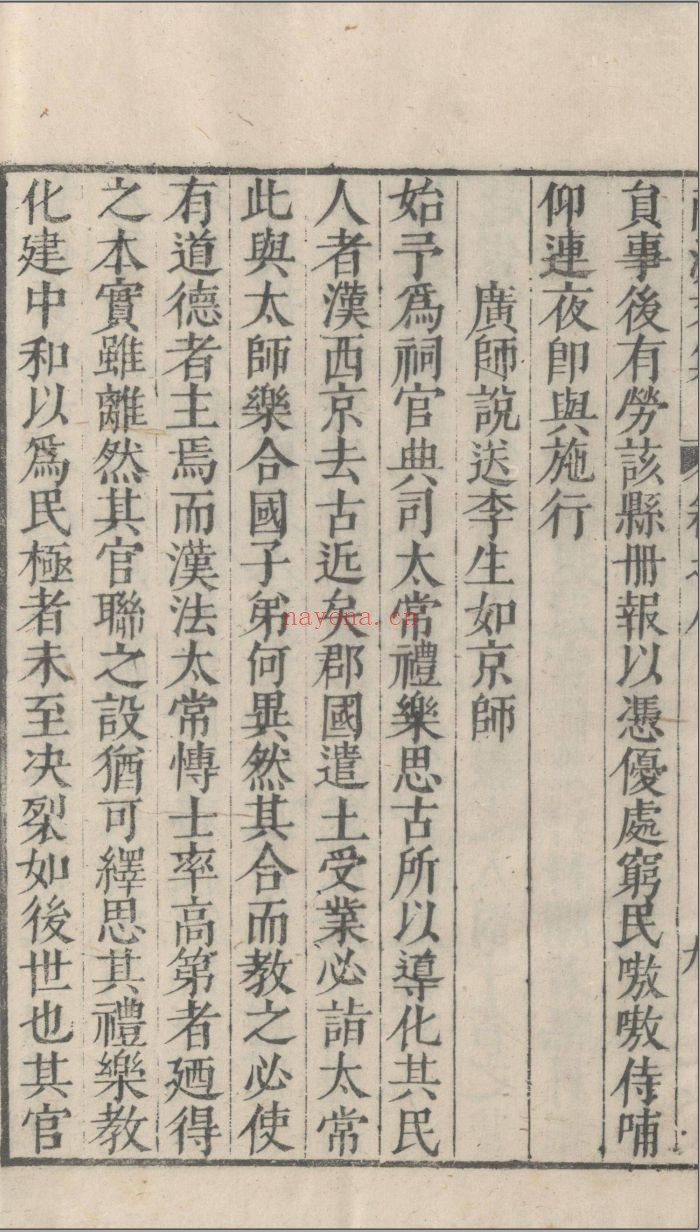 貟事後有勞該縣冊報以憑優處窮民嗷嗷侍哺
仰連夜卽與施行
廣師說送李生如京師
始予爲祠官典司太常禮樂思古所以導化其民
人者漢西京去古近矣郡國遣士受業必詣太常
此與太師樂合國子弟何異然其合而教之必使
有道德者主焉而漢法太常愽士率高第者廼得
之本實雖離然其官聯之設猶可繹思其禮樂教
化建中和以爲民極者未至决裂如後世也其官
nayona.ca